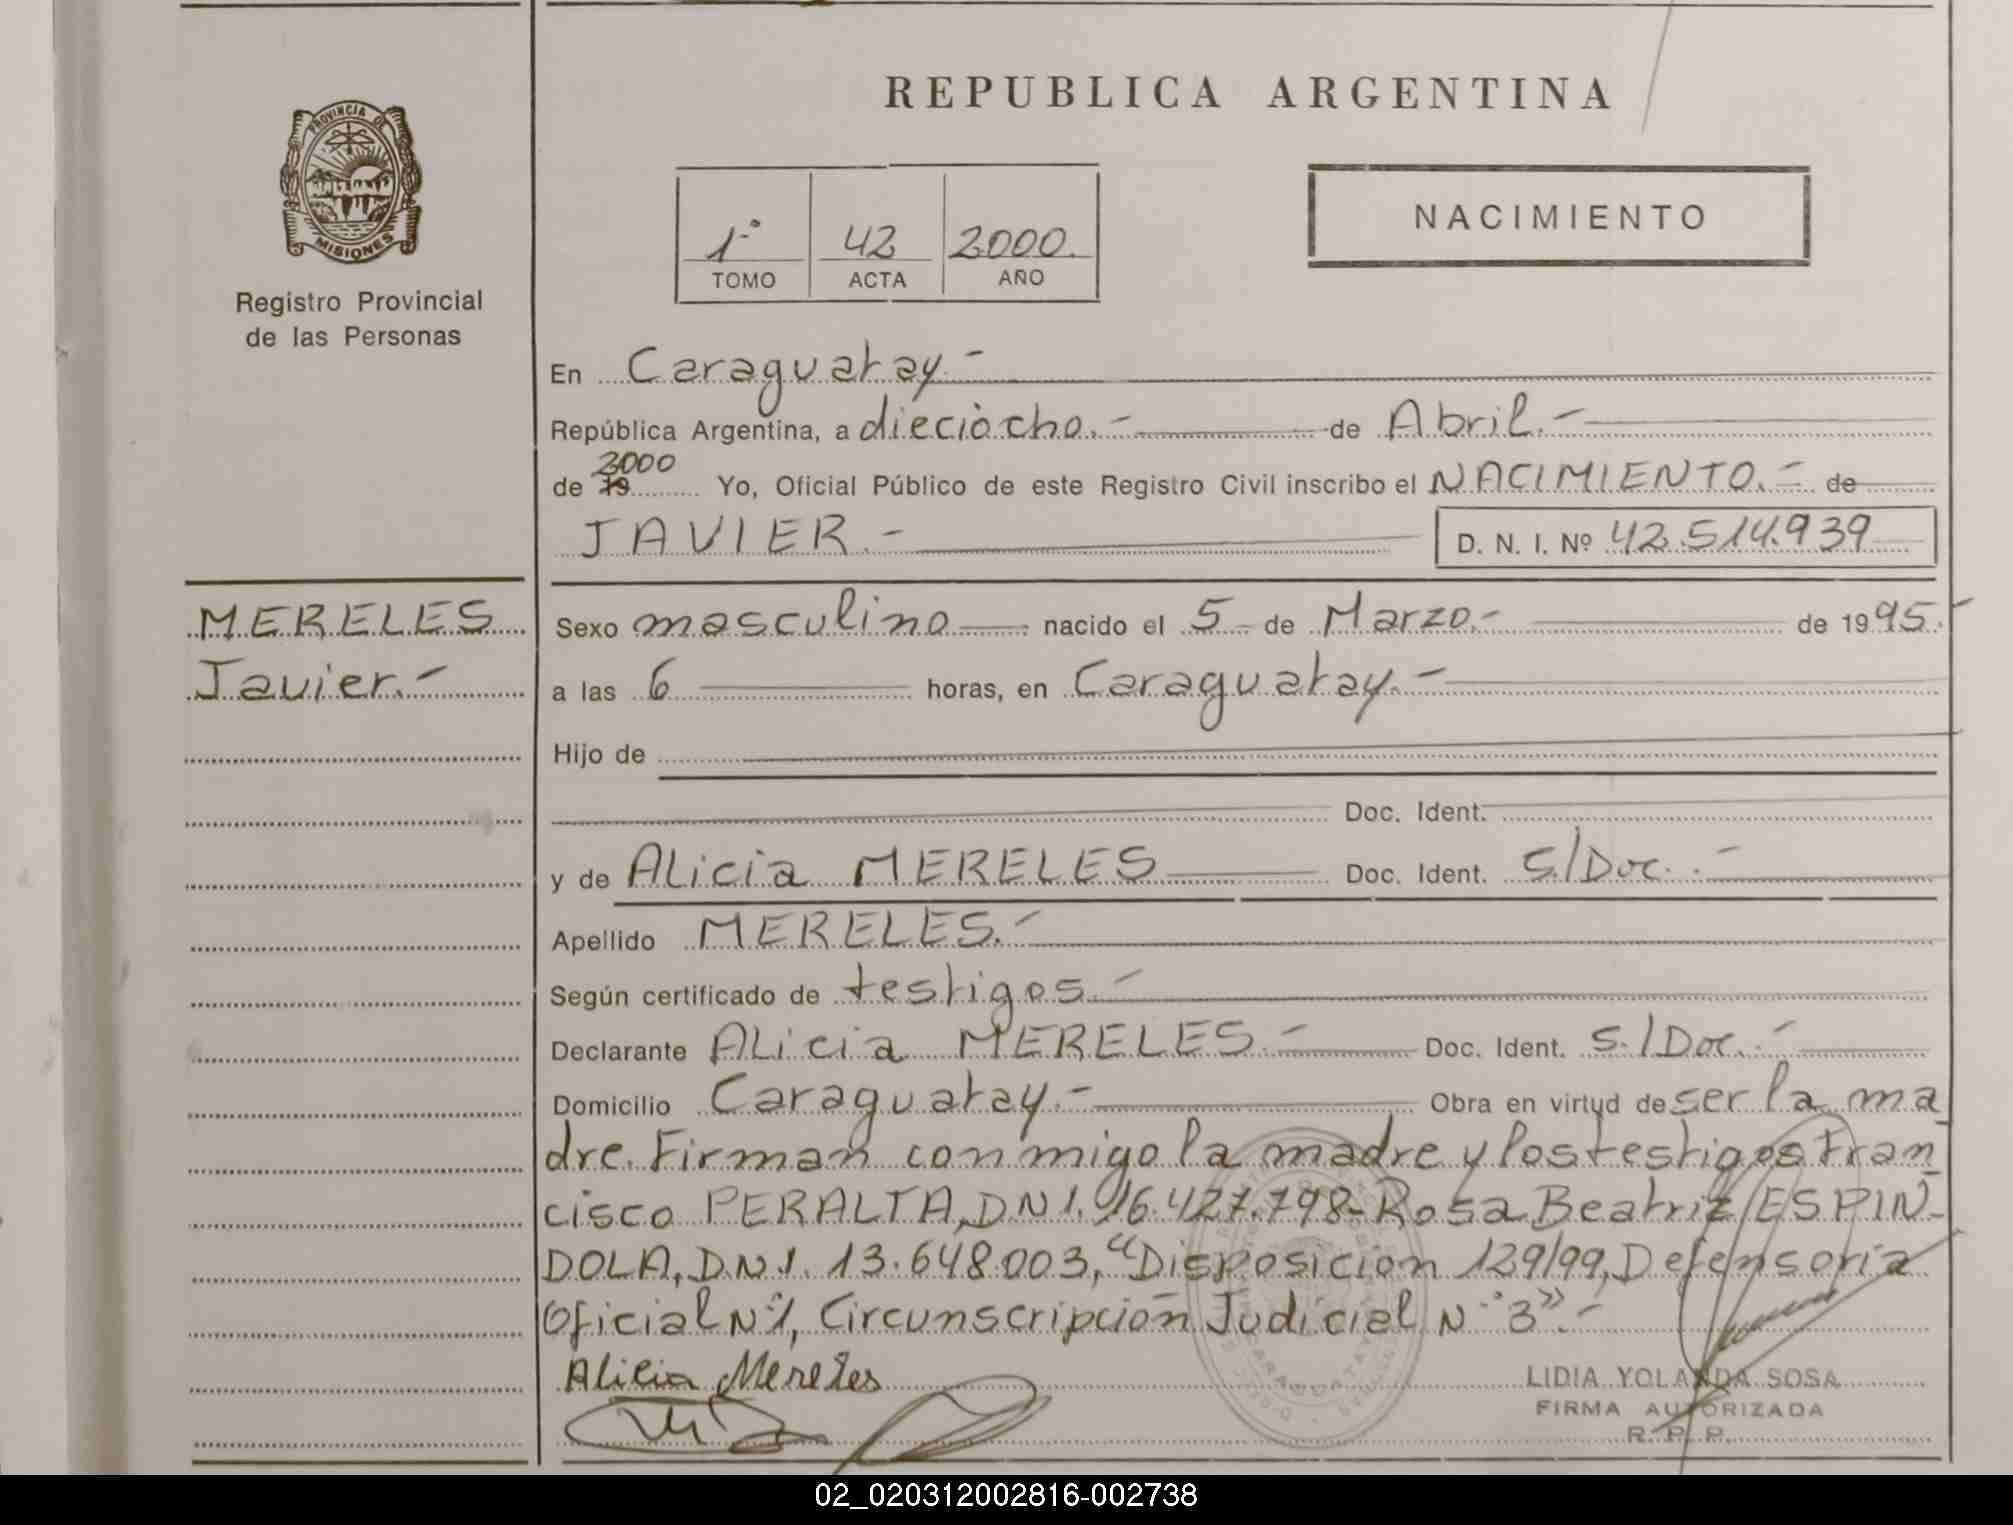 REPUBLICA ARGENTINA
PROVINCIA DE
MISIONES
Registro Provincial
de las Personas
1º 42 2000.
TOMO ACTA AÑO
NACIMIENTO
En Caraguatay.-
República Argentina, a dieciocho.- de Abril.-
de 19 2000 Yo, Oficial Público de este Registro Civil inscribo el NACIMIENTO.- de
JAVIER.- D. N. I. Nº 42.514.939
MERELES
Javier.-
Sexo masculino nacido el 5 de Marzo.- de 1995.-
a las 6 horas, en Caraguatay.-
Hijo de
Doc. Ident.
y de Alicia MERELES Doc. Ident. S/Doc..-
Apellido MERELES.-
Según certificado de testigos.-
Declarante Alicia MERELES.- Doc. Ident. S/Doc..-
Domicilio Caraguatay.- Obra en virtud de ser la ma
dre. Firman conmigo la madre y los testigos Fran_
cisco PERALTA, DNI. 16.427.798- Rosa Beatriz ESPIN_
DOLA, D.N.I. 13.648.003, "Disposición 129/99, Defensoría
Oficial Nº1, Circunscripción Judicial Nº 3".-
Alicia Mereles
LIDIA YOLANDA SOSA
FIRMA AUTORIZADA
R. P. P.
02_020312002816-002738